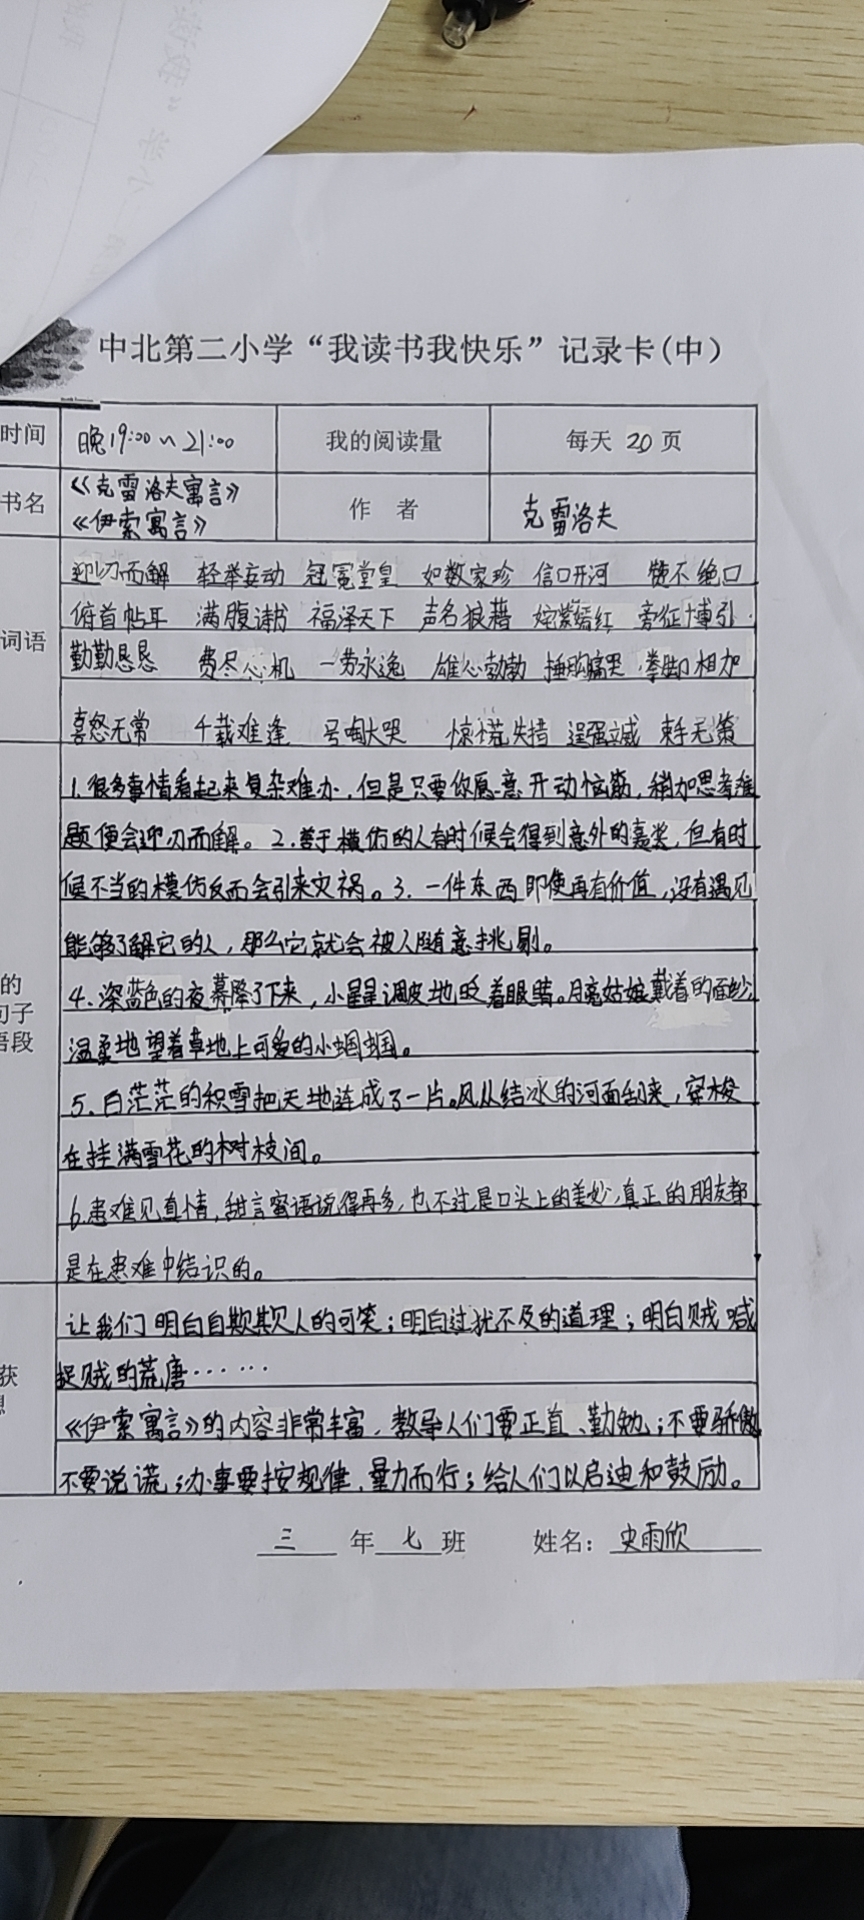 中北第二小学“我读书我快乐”记录卡(中)
时间 晚19:00~21:00 我的阅读量 每天 20 页
书名 《克雷洛夫寓言》 作 者 克雷洛夫
《伊索寓言》
迎刃而解 轻举妄动 冠冕堂皇 如数家珍 信口开河 赞不绝口
俯首帖耳 满腹诗书 福泽天下 声名狼藉 姹紫嫣红 旁征博引
词语
勤勤恳恳 费尽心机 一劳永逸 雄心勃勃 捶胸痛哭 拳脚相加
喜怒无常 千载难逢 号啕大哭 惊慌失措 逞强 束手无策
1.很多事情看起来复杂难办,但是只要你愿意开动脑筋,稍加思考难
题便会迎刃而解。2.善于模仿的人有时候会得到意外的嘉奖,但有时
候不当的模仿反而会引来灾祸。3.一件东西即使再有价值,没有遇见
能够了解它的人,那么它就会被人随意挑剔。
的
句子
语段
4.深蓝色的夜幕降了下来,小星星调皮地眨着眼睛。月亮姑娘戴着的面纱,
温柔地望着草地上可爱的小蝈蝈。
5.白茫茫的积雪把天地连成了一片。风从结冰的河面刮来,穿梭
在挂满雪花的树枝间。
6.患难见真情,甜言蜜语说得再多,也不过是口头上的美妙,真正的朋友都
是在患难中结识的。
获
想
让我们明白自欺欺人的可笑;明白过犹不及的道理;明白贼喊
捉贼的荒唐……
《伊索寓言》的内容非常丰富,教导人们要正直、勤勉;不要骄傲
不要说谎;办事要按规律,量力而行;给人们以启迪和鼓励。
三 年 七 班 姓名: 史雨欣